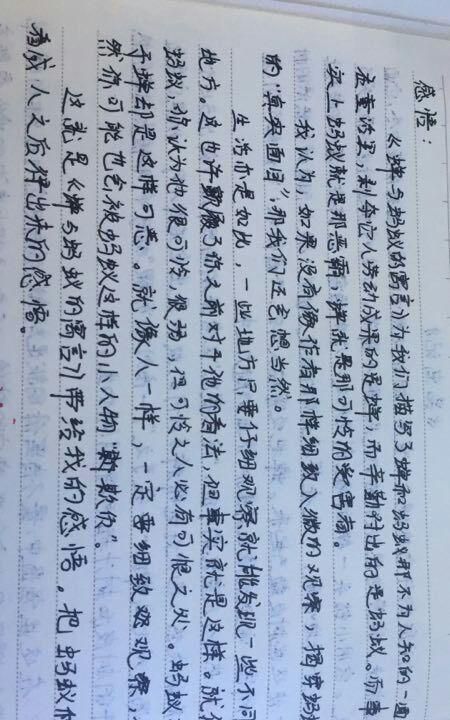 感悟：
《蝉与蚂蚁的寓言》为我们描写了蝉和蚂蚁那不为人知的一面
在童话里，剥夺他人劳动成果的是蝉，而辛勤付出的是蚂蚁。而事
实上蚂蚁就是那恶霸，蝉就是那可怜的受害
我认为，如果没有像作者那样细致入微的观察，揭穿蚂
的"真实面目"，那我们还会想当然。
生活亦是如此，一些地方只要仔细观察就能发现一些不同
地方。这也许颠覆了你之前对于他的看法，但事实就是这样。就
蚂蚁，你认为他很可怜，很弱，但可怜之人必有可恨之处。蚂蚁
于蝉却是这样可恶。就像人一样，一定要细致观察，
然你可能也会被蚂蚁这样的小人物欺负"。
这就是《蝉与蚂蚁的寓言》带给我的感悟。把蚂蚁
看成人之后得出来的感悟。